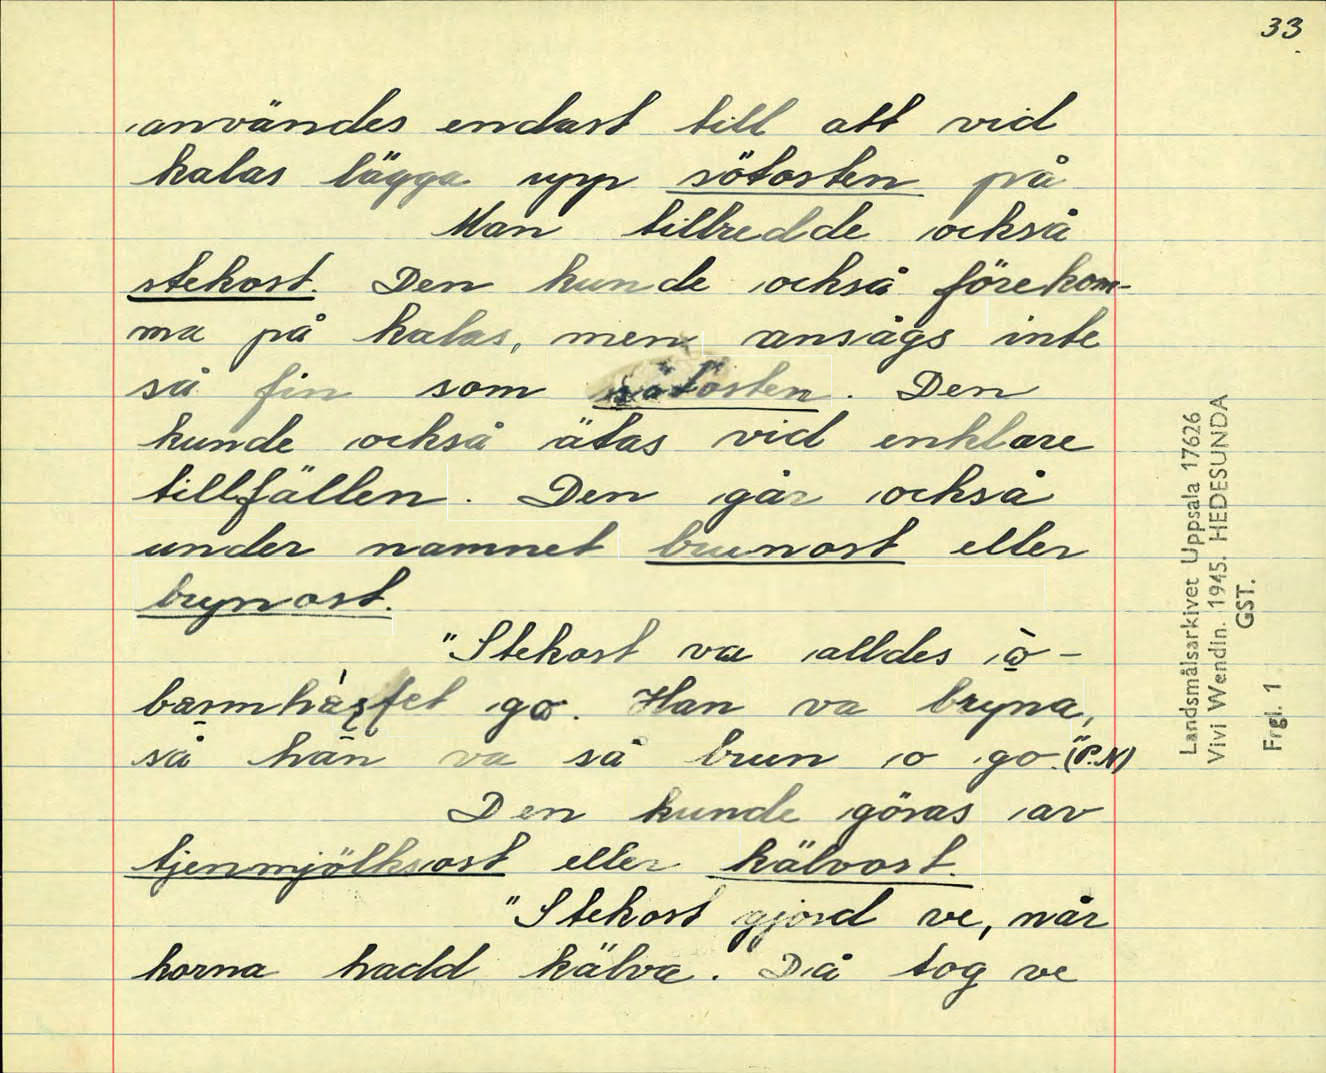 33
användes endast till att vid
kalas lägga upp sötosten på
Man tillredde också
stekost. Den kunde också förekom-
ma på kalas, men ansågs inte
så fin som sötosten. Den
kunde också ätas vid enklare
tillfällen. Den går också
under namnet brunost eller
brynost.
"Stekost va alldes o-
barmhärtet go. Han va bryna,
så han va så brun o go." (P.N)
Den kunde göras av
tjenmjölksost eller kälvost.
"Stekost gjord ve, når
korna hadd kälva. Då tog ve
Landsmålsarkivet Uppsala 17626
Vivi Wendin. 1945. HEDESUNDA
GST.
Frgl. 1